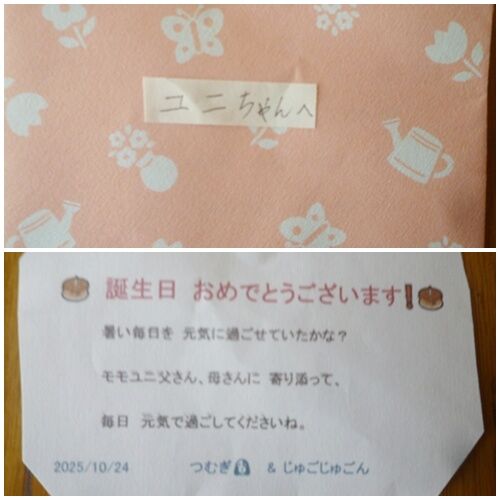 ユニちゃんへ
誕生日 おめでとうございます!
暑い毎日を 元気に過ごせていたかな?
モモユニ父さん、母さんに 寄り添って、
毎日 元気で過ごしてくださいね。
2025/10/24 つむぎ & じゅごじゅごん